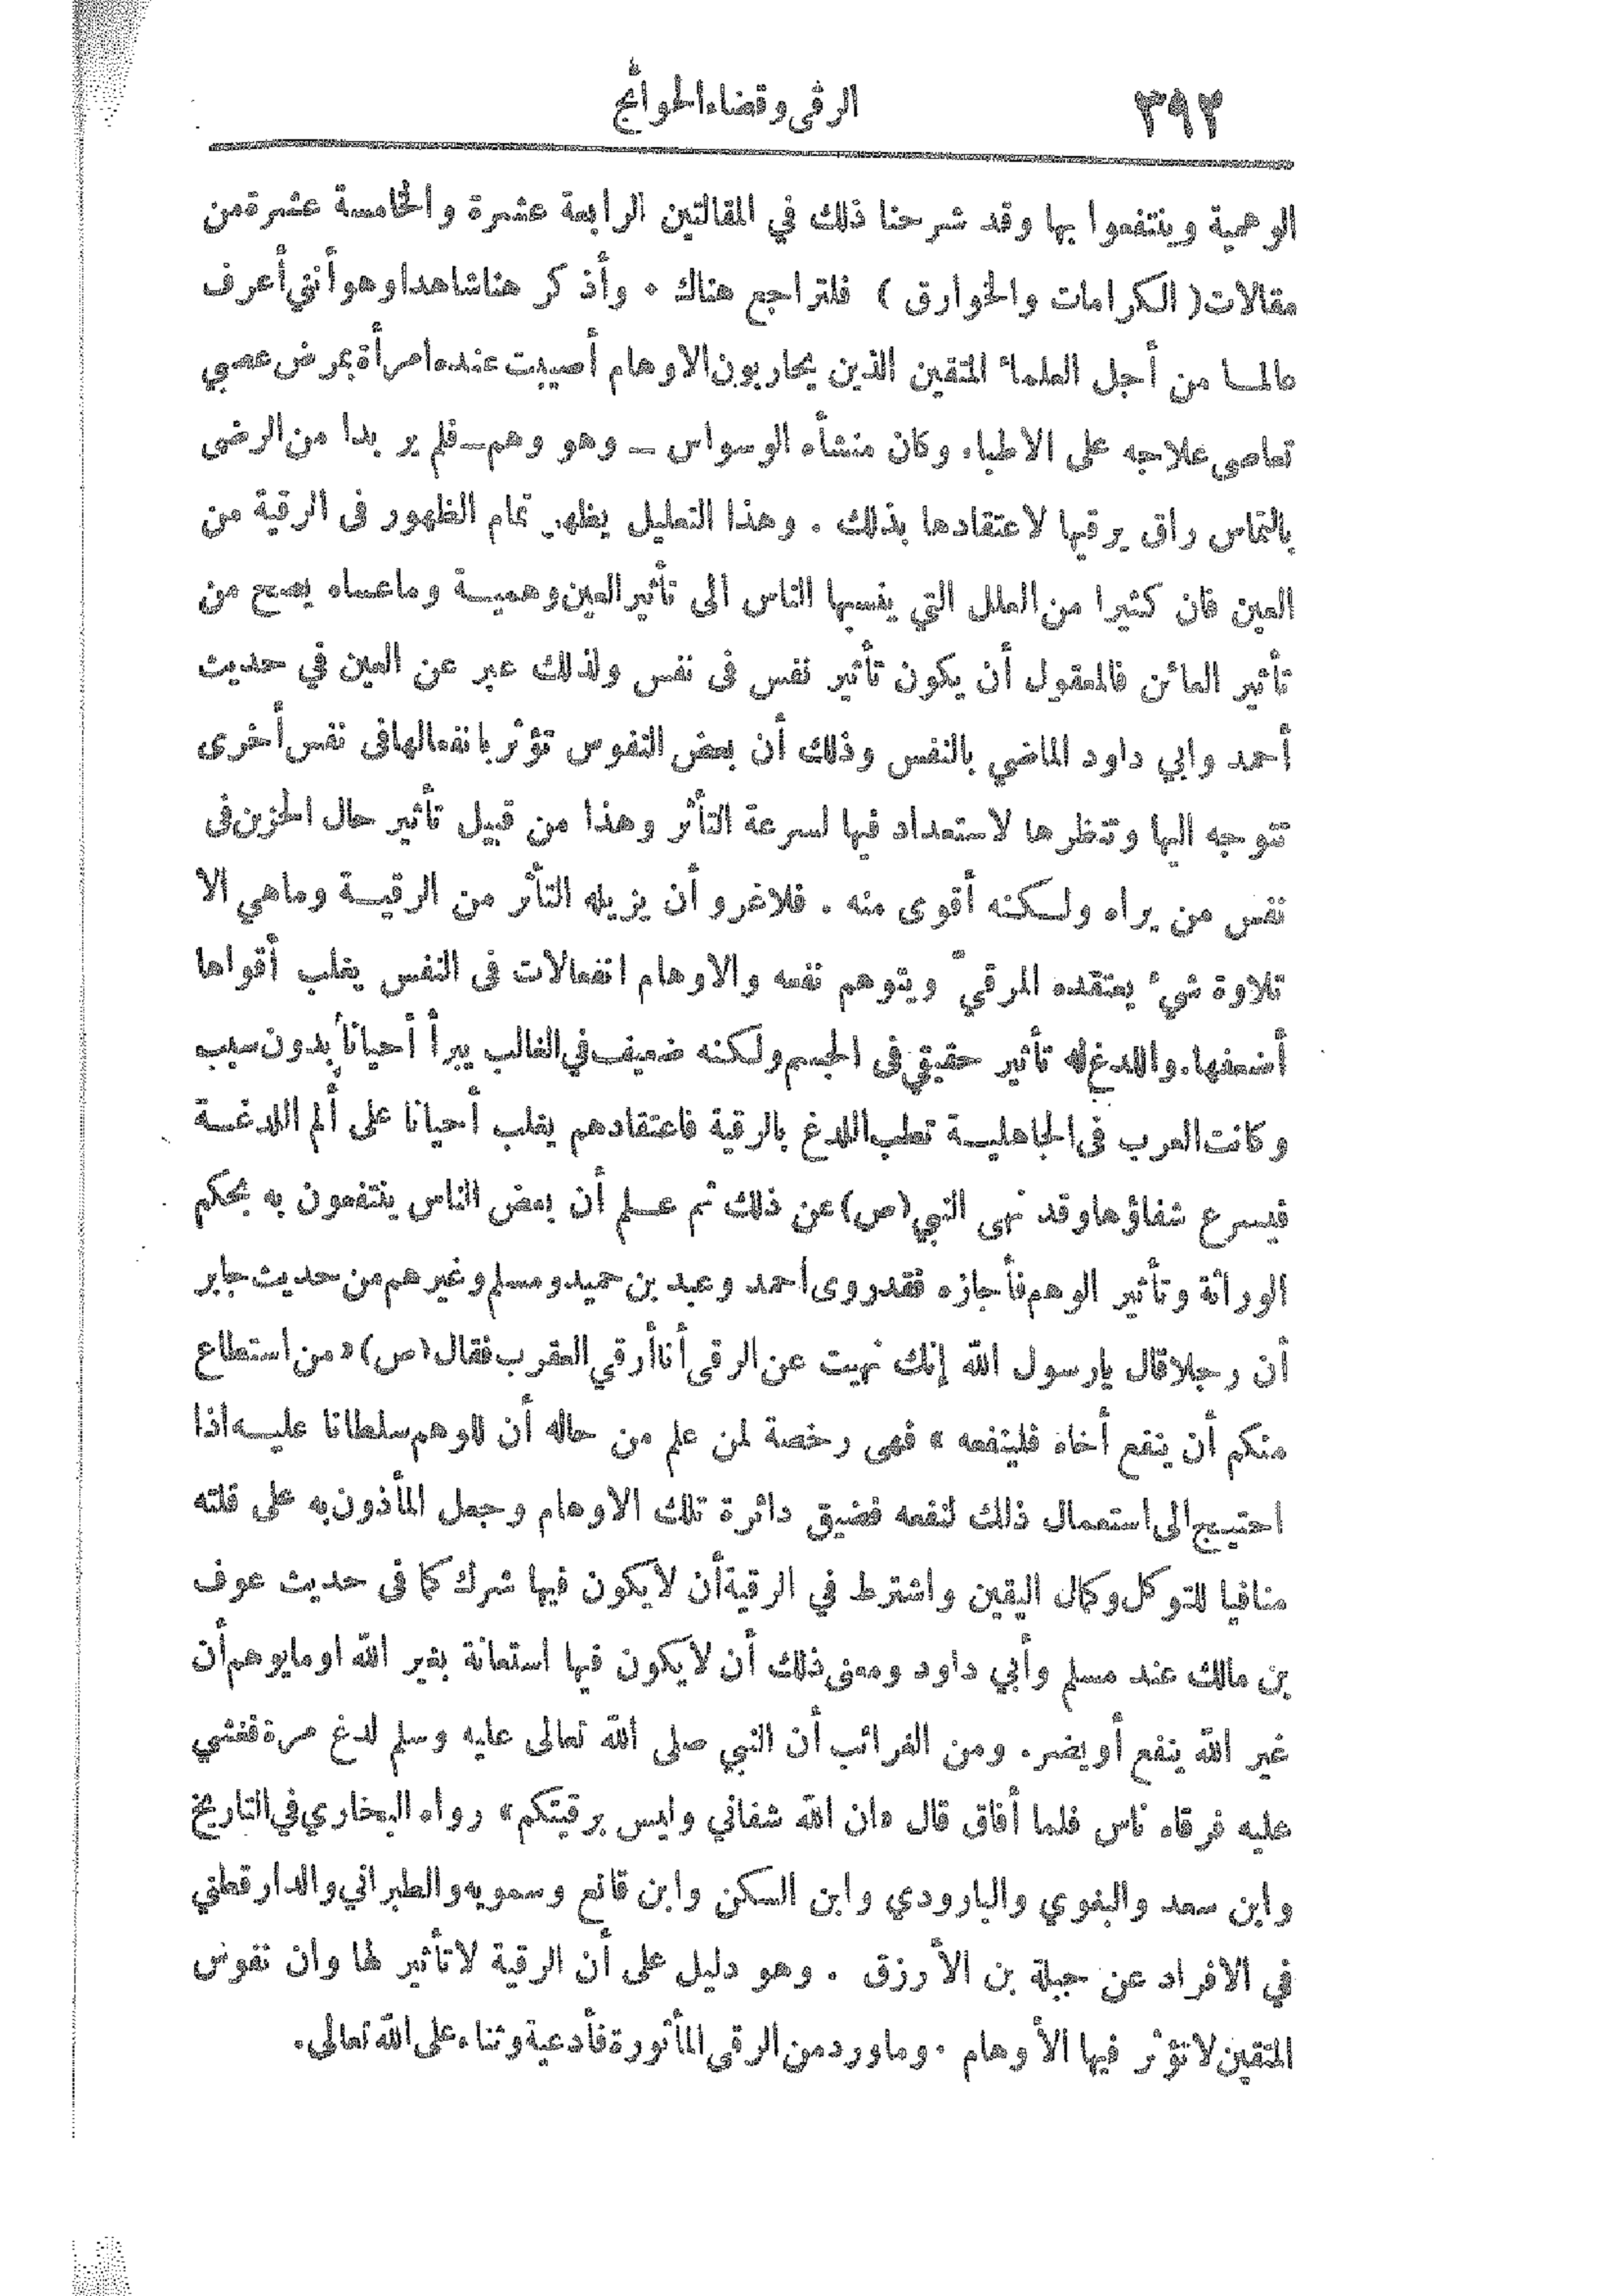 ٣٩٢
الرقى وقضاء الحوائج
الوهمية وينتفعوا بها وقد شرحنا ذلك في المقالتين الرابعة عشرة والخامسة عشرة من
مقالات ( الكرامات والخوارق ) فلتراجع هناك . وأذكر هنا شاهدا وهو أنني أعرف
عالما من أجل العلماء المتقين الذين يحاربون الاوهام أصيبت عنده امرأة بمرض عصبي
تعاصى علاجه على الاطباء وكان منشأه الوسواس ــ وهو وهم ــ فلم ير بدا من الرضى
بالتماس راق يرقيها لاعتقادها بذلك . وهذا التعليل يظهر تمام الظهور فى الرقية من
العين فان كثيرا من العلل التي ينسبها الناس الى تأثير العين وهمية وما عساه يصح من
تأثير العائن فالمعقول أن يكون تأثير نفس فى نفس ولذلك عبر عن العين في حديث
أحمد وابي داود الماضي بالنفس وذلك أن بعض النفوس تؤثر بانفعالها فى نفس أخرى
تتوجه اليها وتنظرها لاستعداد فيها لسرعة التأثر وهذا من قبيل تأثير حال الحزن فى
نفس من يراه ولكنه أقوى منه . فلا غرو أن يزيله التأثر من الرقية وما هي الا
تلاوة شيء يعتقده المرقيّ ويتوهم نفعه والاوهام انفعالات فى النفس يغلب أقواها
أضعفها . واللدغ له تأثير حقيقي فى الجسم ولكنه ضعيف في الغالب يبرأ أحيانا بدون سبب
وكانت العرب فى الجاهلية تطب اللدغ بالرقية فاعتقادهم يغلب أحيانا على ألم اللدغة
فيسرع شفاؤها وقد نهى النبي (ص) عن ذلك ثم علم أن بعض الناس ينتفعون به بحكم
الوراثة وتأثير الوهم فأجازه فقد روى أحمد وعبد بن حميد ومسلم وغيرهم من حديث جابر
أن رجلا قال يارسول الله إنك نهيت عن الرقى أنا أرقي العقرب فقال (ص) « من استطاع
منكم أن ينفع أخاه فلينفعه » فهى رخصة لمن علم من حاله أن للوهم سلطانا عليه اذا
احتيج الى استعمال ذلك لنفعه فضيق دائرة تلك الاوهام وجعل المأذون به على قلته
منافيا للتوكل وكمال اليقين واشترط في الرقية أن لا يكون فيها شرك كما فى حديث عوف
بن مالك عند مسلم وأبي داود ومعنى ذلك أن لا يكون فيها استعانة بغير الله او ما يوهم أن
غير الله ينفع أو يضر . ومن الغرائب أن النبي صلى الله تعالى عليه وسلم لدغ مرة فغشي
عليه فرقاه ناس فلما أفاق قال «ان الله شفاني وليس برقيتكم» رواه البخاري في التاريخ
وابن سعد والبغوي والبارودي وابن السكن وابن قانع وسمويه والطبراني والدارقطني
في الافراد عن جبلة بن الأزرق . وهو دليل على أن الرقية لا تأثير لها وان نفوس
المتقين لا تؤثر فيها الأوهام . وما ورد من الرقى المأثورة فأدعية وثناء على الله تعالى .